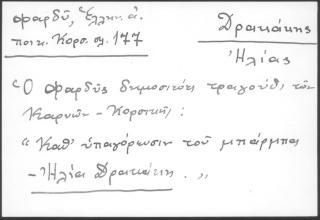 Φαρδύ, Ἑλλην. ἀ.
ποιτ. Κορσ. σ. 177
Δρακάκης
Ἠλίας
Ὁ Φαρδὺς δημοσιεύει τραγούδι τῶν
Καρυῶν - Κορσικῆς :
"Καθ' ὑπαγόρωσιν τοῦ μπάρμπα
- Ἠλία Δρακάκη. „